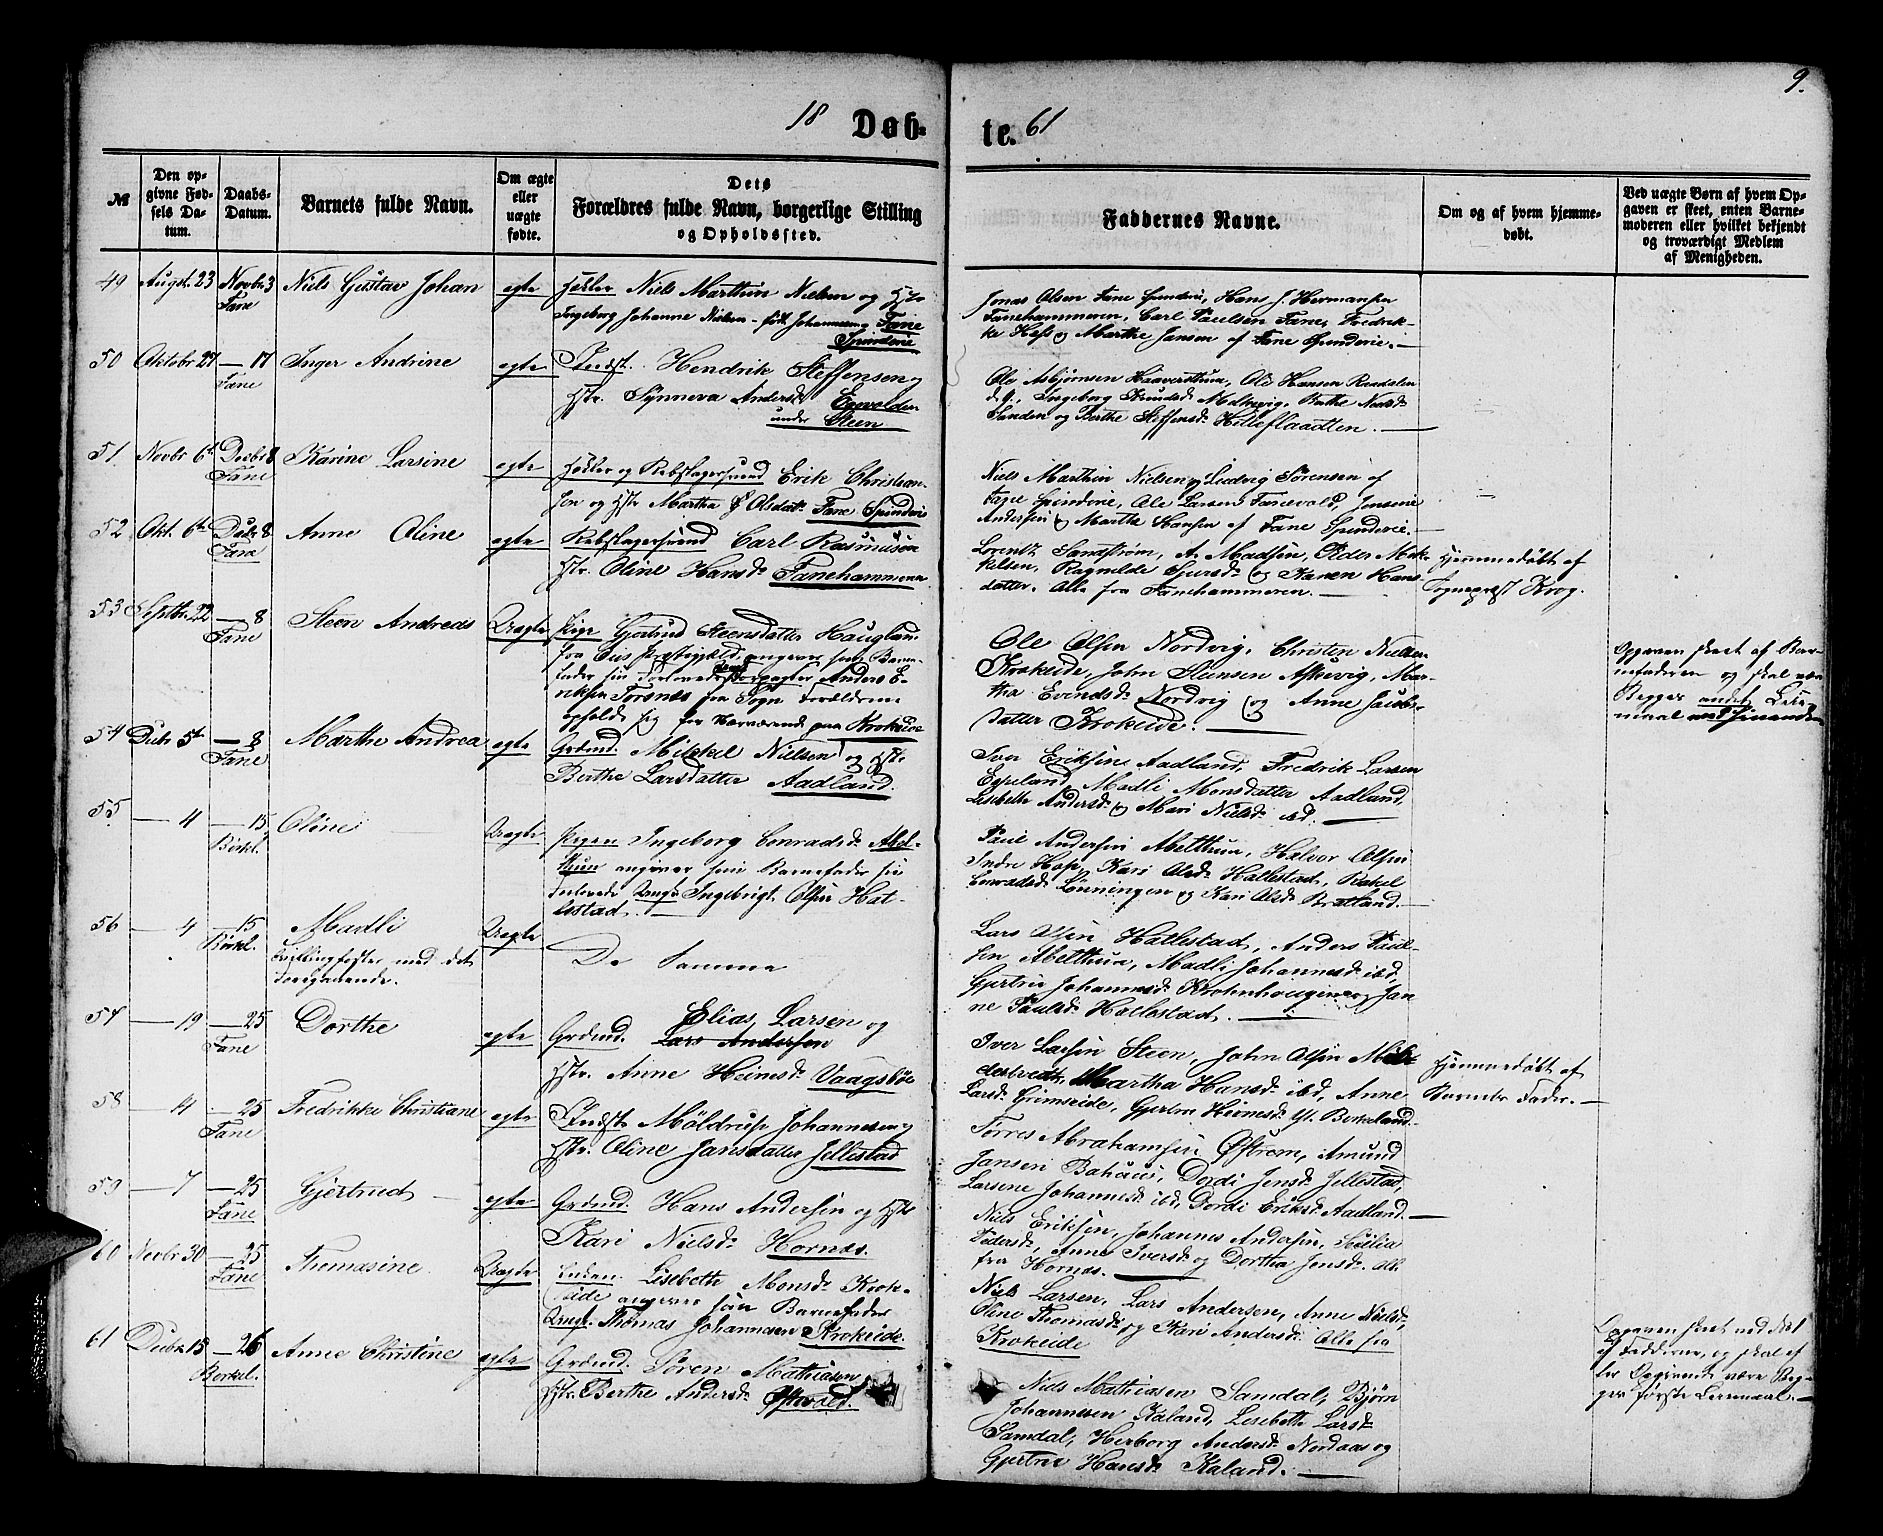 9.
18 Døb-
te. 61
№
Den op-
givne Fød-
sels Da-
tum.
Daabs-
Datum.
Barnets fulde Navn.
Om ægte
eller
uægte
fødte.
Dets
Forældres fulde Navn, borgerlige Stilling
og Opholdssted.
Faddernes Navne.
Om og af hvem hjemme-
døbt.
Ved uægte Børn af hvem Op-
gaven er skeet, enten Barne-
moderen eller hvilket bekjendt
og troværdigt Medlem
af Menigheden.
49 Augst. 23 Novbr 3 Niels Gustav Johan egte Niels Marthin Nielsen og Hstr
Fane Ingeborg Johanne Nielsen - født Johannesen Fane
Spinderie
Jonas Olsen Fane Spinderi, Hans J. Hermansen
Fanehammeren, Carl Paulsen Fane, Fredrik-
ke Hess og Marthe Jansen af Fane Spinderie. —
50 Oktobr 27 — 17 Inger Andrine egte Indst. Hendrik Steffensen og
Fane Hstr. Synneva Andersd.
under Steen
Ole Asbjørnsen Haaversthun, Ole Hansen Raadalen
d. y., Ingeborg Knudsd. Nilsd.
Sanden og Berthe Steffensd. Hilleflaadten. —
51. Novbr 6te Decbr 8 Karine Larsine egte og Rebslagersvend Erik Christian-
Fane sen og Hstr Martha Olsdatr. Fane Spinderie
Niels Marthin Nielsen og Ludvig Sørensen af
Fane Spinderie, Ole Larsen Fanevald, Jensine
Andersen og Marthe Hansen af Fane Spinderie. —
52 Okt. 6te Decbr 8 Anne Oline egte Rebslagersvend Carl Rasmussen
Fane Hstr. Oline Hansd. Fanehammeren
Lorentz Sandstrøm, A. Madsen, Peder Mik-
kelsen, Ragnilde Sjursd. og Karen Hans-
datter. Alle fra Fanehammeren. —
Hjemmedøbt af
Sognepræst Krog.
53 Septbr. 22 — 8 Steen Andreas Uægte Pige Gjertrud Steensdatter Haugland
Fane fra Præstegjeld, angiver som Barne-
fader sin Anders E-
riksen fra Sogn Forældrene
opholde sig for Nærværende paa Krokeide
Ole Olsen Nordvig, Christen Nielsen
Krokeide, John Steensen Mar-
tha Evendsd. Nordvig og Anne Jacobs-
datter Krokeide. —
Opgaven skeet af Bar-
nefaderen og skal være
Begges andet Leier-
maal
54 Decbr 5te — 8 Marthe Andrea egte Grdmd. Mikkel Nielsen og Hstr.
Fane Berthe Larsdatter Aadland.
Iver Eriksen Aadland, Fredrik Larsen
Espeland, Madli Monsdatter Aadland,
Lisebeth Andersd. og Mari Nielsd. ibd. —
55 — 4 — 15 Oline Uægte Pigen Ingeborg Conradsd. Abel-
Birkel. thun angiver som Barnefader sin
Forlovede Ungk. Ingebrigt Olsen Hal-
lestad.
Paul Andersen Abelthun, Halvor Olsen
Indre Hop, Kari Olsd. Hallestad, Rakel
Conradsd. Lønningen og Kari Olsd. Bratland. —
56 — 4 — 15 Madli Uægte
Birkel. Tvillingsøster med det
Foregaaende.
De Samme
Lars Olsen Hallestad, Anders Paul-
sen Abelthun, Madli Johannesd. ibd,
Gjertrue Johannesd. Krohnhougine og Jan-
ne Paulsd. Hallestad. —
57 — 19 — 25 Dorthe egte Grdmd. Elias Larsen og
Fane Lars Andersen
Hstr. Anne Heinesd. Vaagsbø
Iver Larsen Steen, John Olsen Mil-
destvedt, Martha Hansd. ibd, Anne
Larsd. Grimseide, Gjertru Heinesd. Yt. Berkeland.
Hjemmedøbt af
Barnets Fader. —
58 — 14 — 25 Fredrikke Christiane egte Indst. Møldrup Johannesen og
Fane Hstr. Oline Jansdatter Jellestad
Torres Abrahamsen Østrem, Amund
Jansen Bahaus, Dordi Jensd. Jellestad,
Larsene Johannesd. ibd, Dordi Eriksd. Aadland. —
59 — 7 — 25 Gjertrud egte Grdmd. Hans Andersen og Hstr.
Fane Kari Nielsd. Hornæs.
Niels Eriksen, Johannes Andersen,
Pedersd., Anne Iversd. og Dortha Jensd. alle
fra Hornæs. —
60 Novbr 30 — 25 Thomasine Uægte Enken Lisebeth Monsd. Krok-
Fane eide angiver som Barnefader
Ungk. Thomas Johannesen Krokeide.
Niels Larsen, Lars Andersen, Anne Nielsd.,
Oline Thomasd. og Kari Andersd. Alle fra
Krokeide
Opgaven skeet ved
af Fadderne, og skal ef-
ter Opgivende være Beg-
ges første Leiermaal. —
61 Decbr 15 — 26 Anne Christine egte Grdmd. Søren Mathiasen
Birkel. Hstr. Berthe Andersd. Østvold.
Niels Mathiasen Samdal, Bjørn
Johannesen Kaland, Lisebeth Larsd.
Samdal, Herborg Andersd. Nordaas og
Gjertrue Hansd. Kaland. —